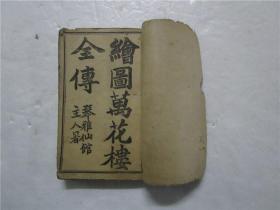 繪圖萬花樓
全傳
琴雅仙館
主人署